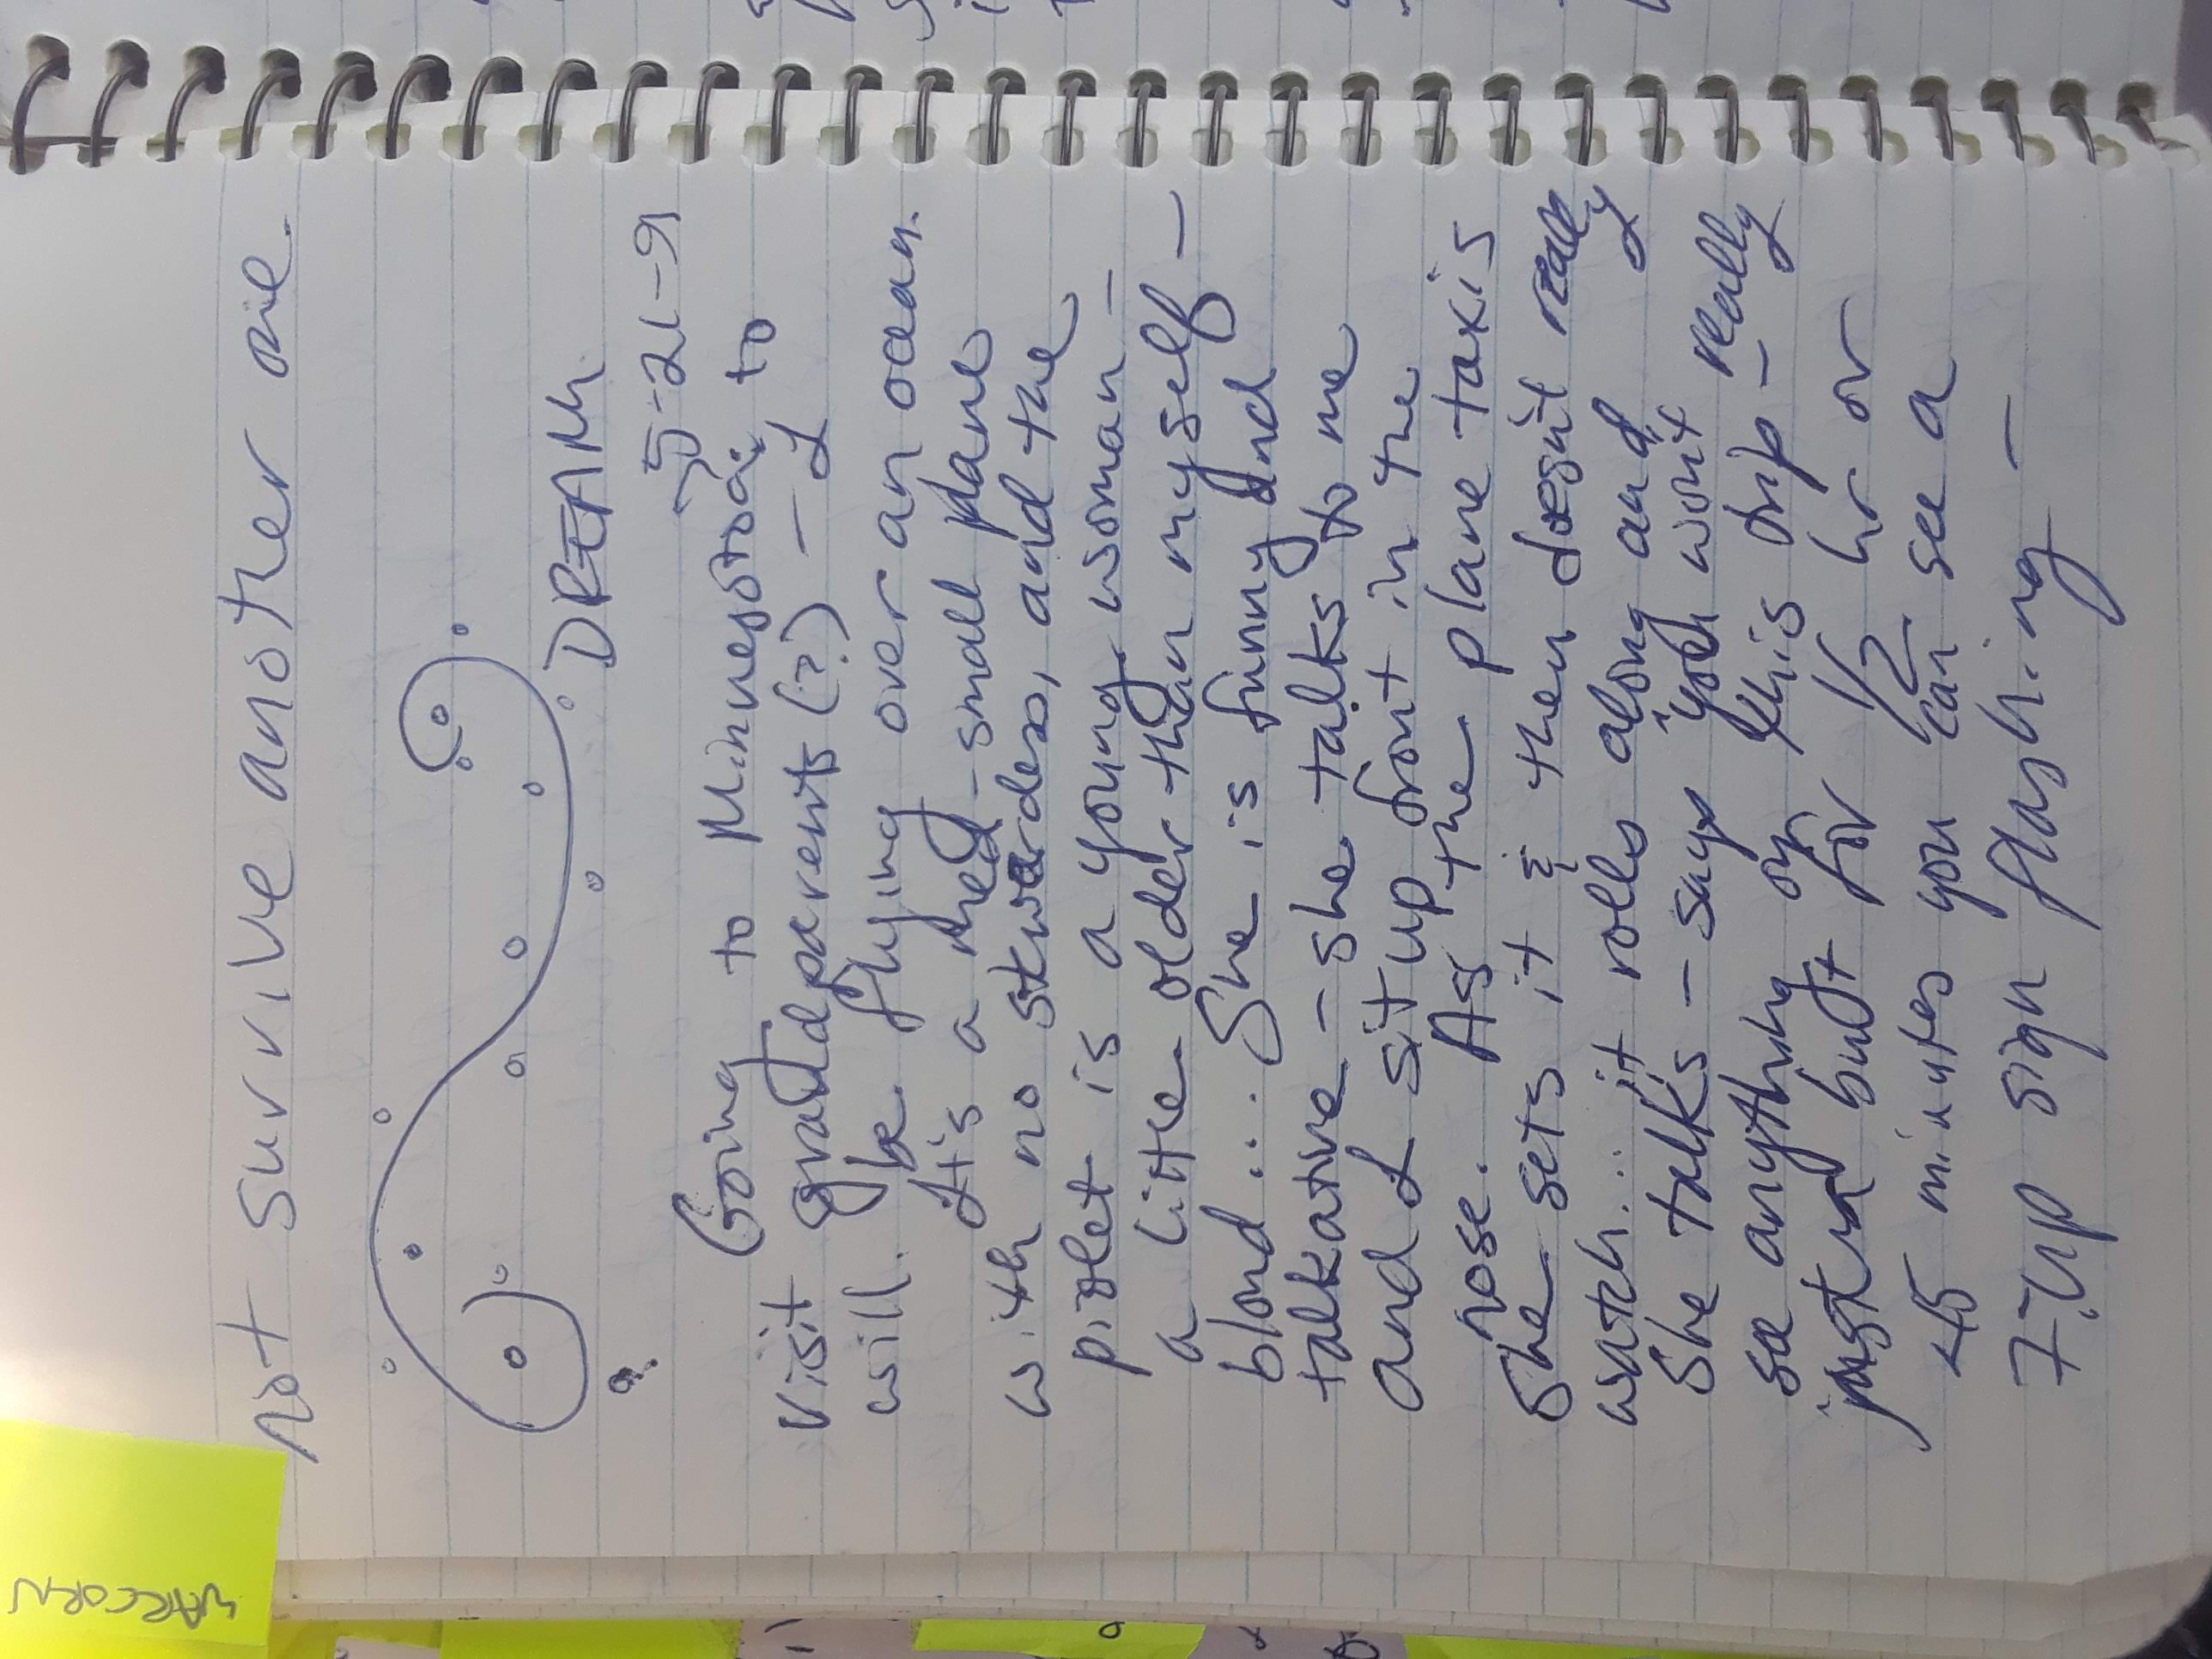 not survive another one.
DREAM
5-21-91
Going to Minnestoda to
visit grandparents (?) - I
will be flying over an ocean.
It is a med-small plane
with no stwardess, and the
pivlet is a young woman -
a little older than myself -
blond... She is funny and
talkative - she talks to me
and I sit up front in the
nose. As the plane taxis
She sets it & then doesnt really
watch... it rolls along and
She talks - says "you wont really
see anything on this trip -
just but for 1/2 hr or
45 minutes you can see a
7-up sign flashing -
WARCORN